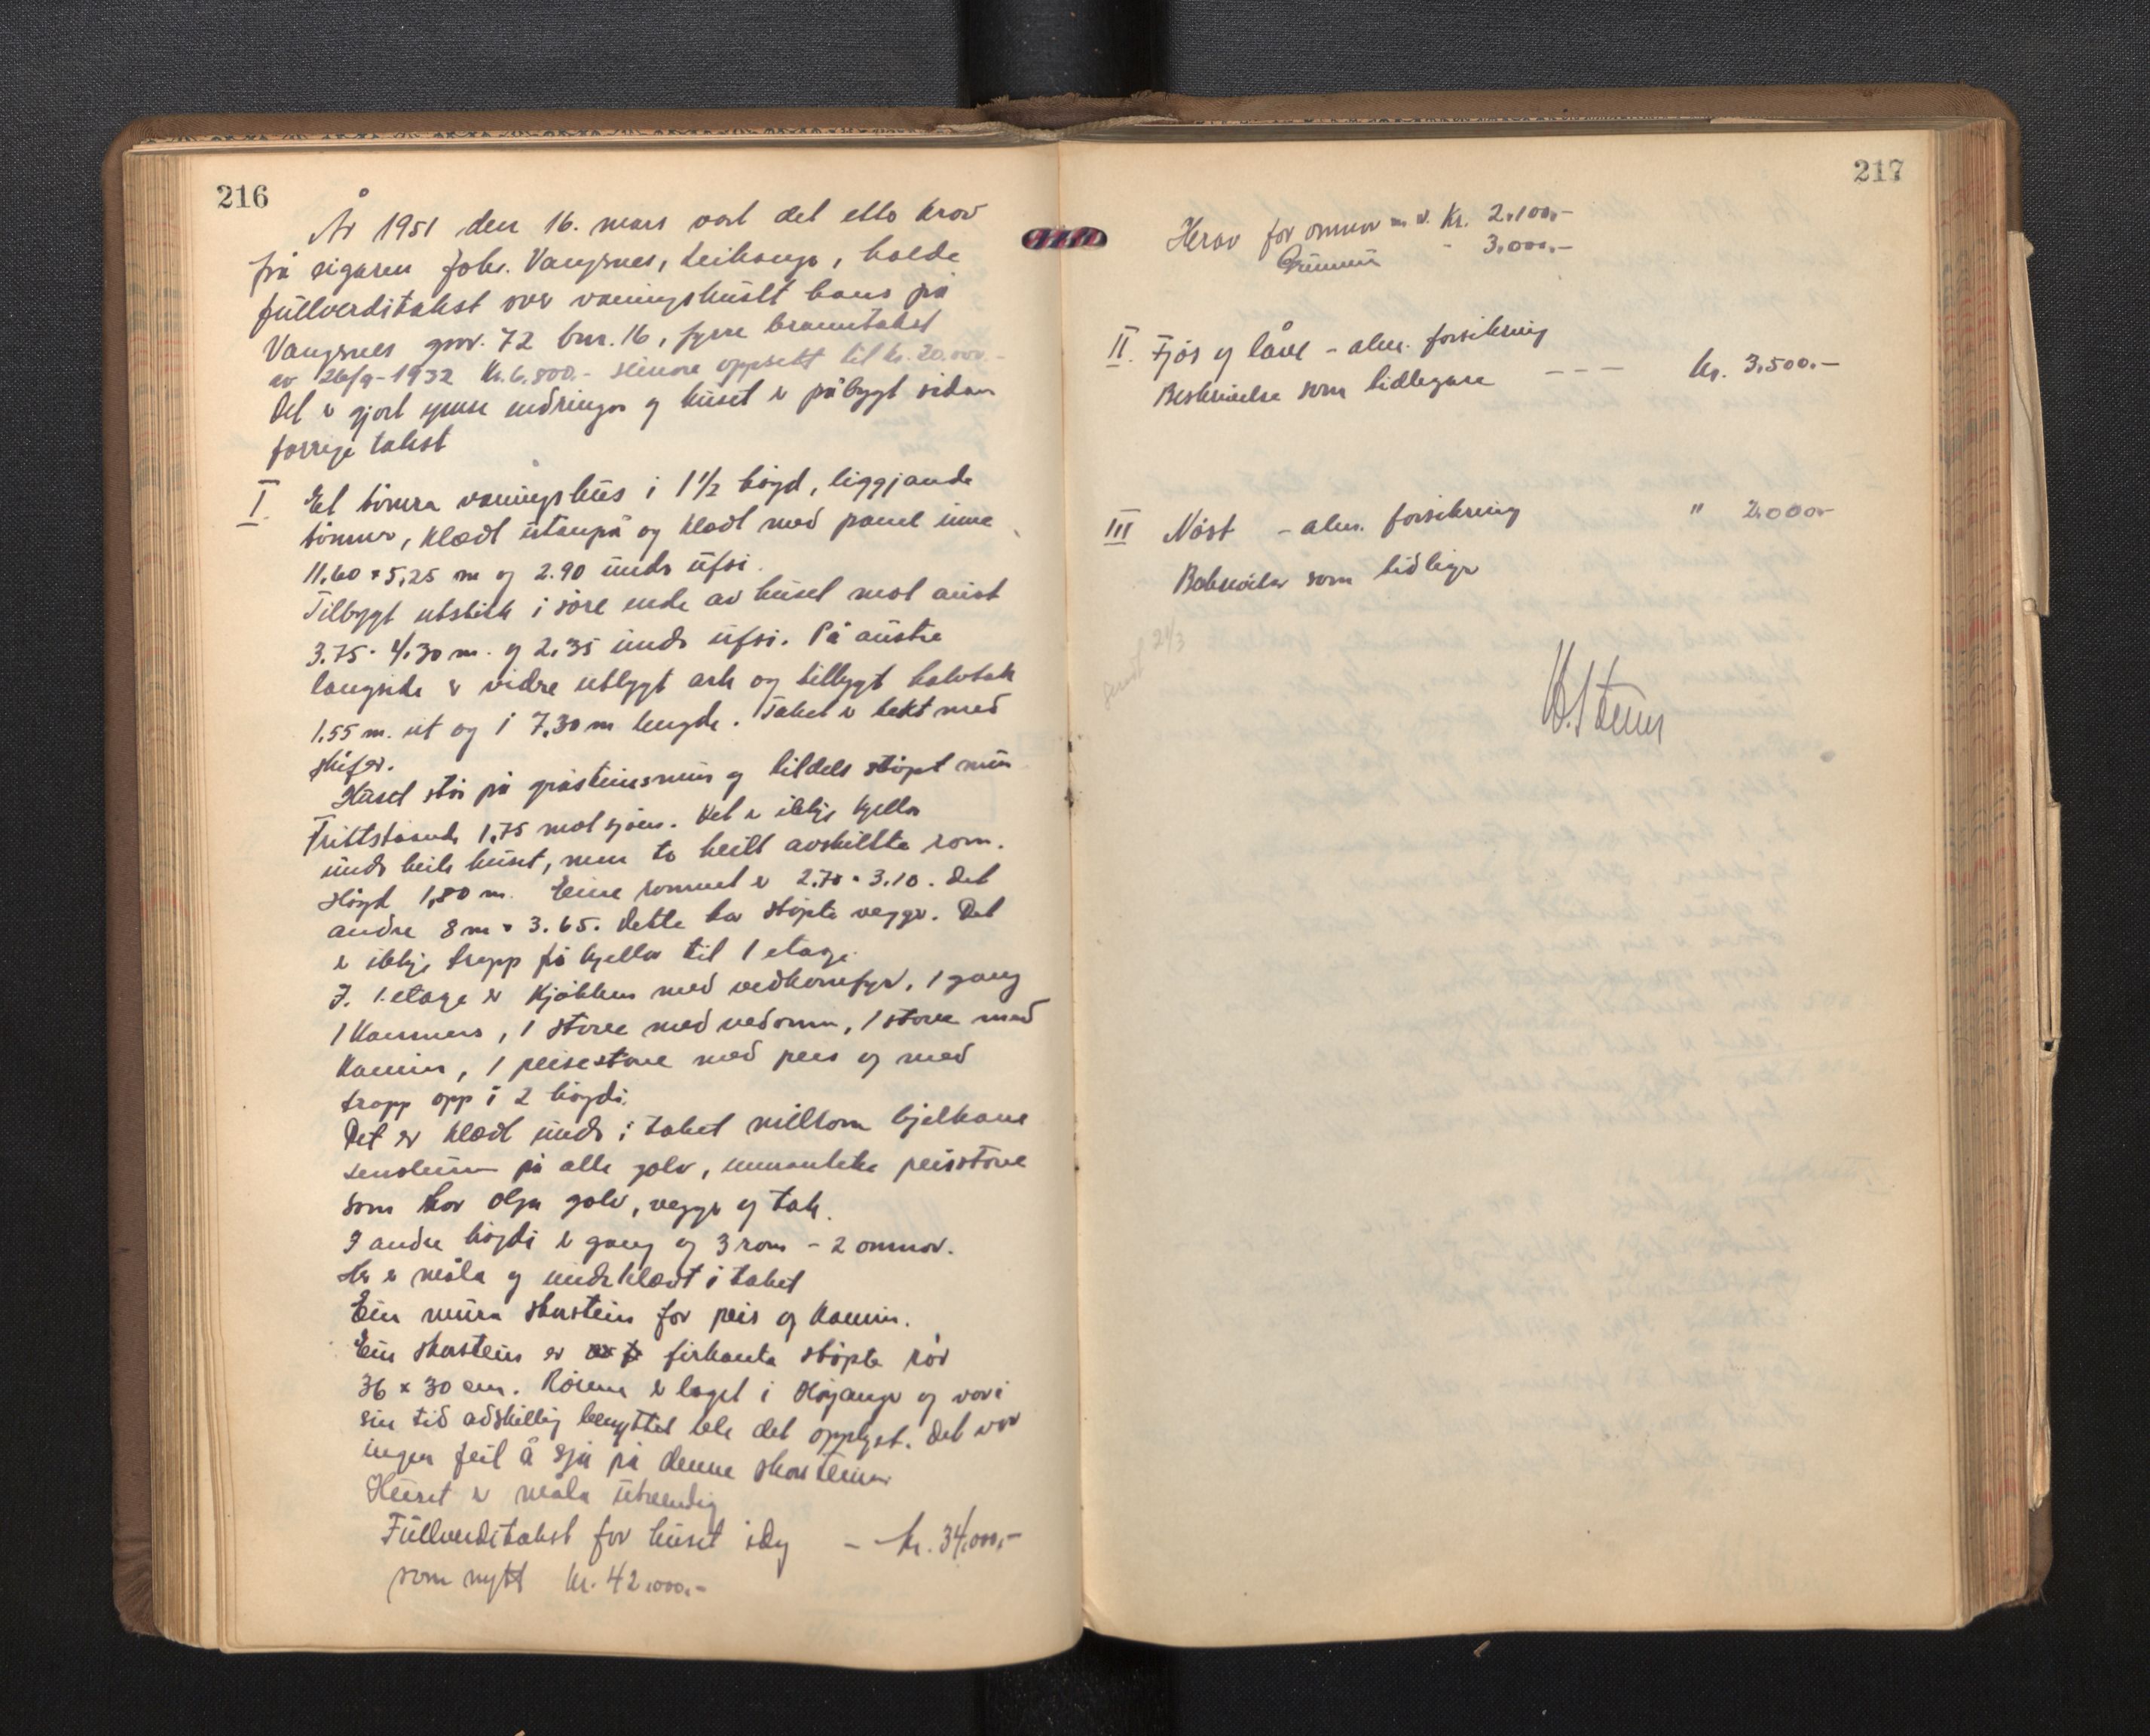 216
År 1951 den 16. mars vart det etto krav
frå eigaren Johs. Vangsnes, Leikanger, halde
fullverditakst over våningshuset hans på
Vangsnes gnr. 72 bnr. 16, fyrre branntakst
av 26/9-1932 kr. 6.800.- seinare oppsett til kr. 20.000.-
Det er gjort ymse endringar og huset er påbygt sidan
førrige takst
I. Eit tømra våningshus i 1 1/2 høgd, liggjande
tømmer, klædt utanpå og klædt med panel inne
11,60 × 5,25 m og 2.90 under ufsi.
Tilbygt utstikk i søre ende av huset mot aust
3.75 · 4.30 m. og 2.35 under ufsi. På austre
langside er vidre utbygt ark og tilbygt halvtak
1.55 m. ut og i 7.30 m lengde. Taket er tekt med
skifer.
Huset står på gråsteinsmur og tildels støpt mur
Frittståande 1,75 mot sjøen. Det er ikkje kjellar
under heile huset, men to heilt avskillte rom.
Høgd 1,80 m. Eine rommet er 2.70 × 3.10. Det
andre 8 m × 3.65. Dette har støpte vegger. Det
er ikkje trapp frå kjellar til 1 etage.
I. 1. etage er kjøkken med vedkomfyr, 1 gang
1 Kammers, 1 stove med vedomn, 1 stove med
Kamin, 1 peisestove med peis og med
trapp opp i 2 høgdi.
Det er klædt under i taket millom bjelkane
Linoleum på alle golv, unnanteke peisstove
som har olja golv, vegger og tak.
I andre høgdi er gang og 3 rom - 2 omnar.
Her er måla og underklædt i taket
Ein mura skorstein for peis og kamin.
Ein skorstein er firkanta støpte rør
36 × 30 cm. Rørene er laget i Høyanger og var i
sin tid adskillig benyttet ble det opplyst. Det var
ingen feil å sjå på denne skorsteinen
Huset er måla utvendig
Fullverditakst for huset idag - kr. 34.000.-
som nytt kr. 42.000.-
217
Herav for omnar m.v. Kr. 2.100.-
Grunnmur - 3.000.-
II. Fjøs og låve - alm. forsikring
Beskrivelse som tidlegare - - - kr. 3.500.-
III Nøst - alm. forsikring " 2.000.-
Beskrivelse som tidlegare
24/3